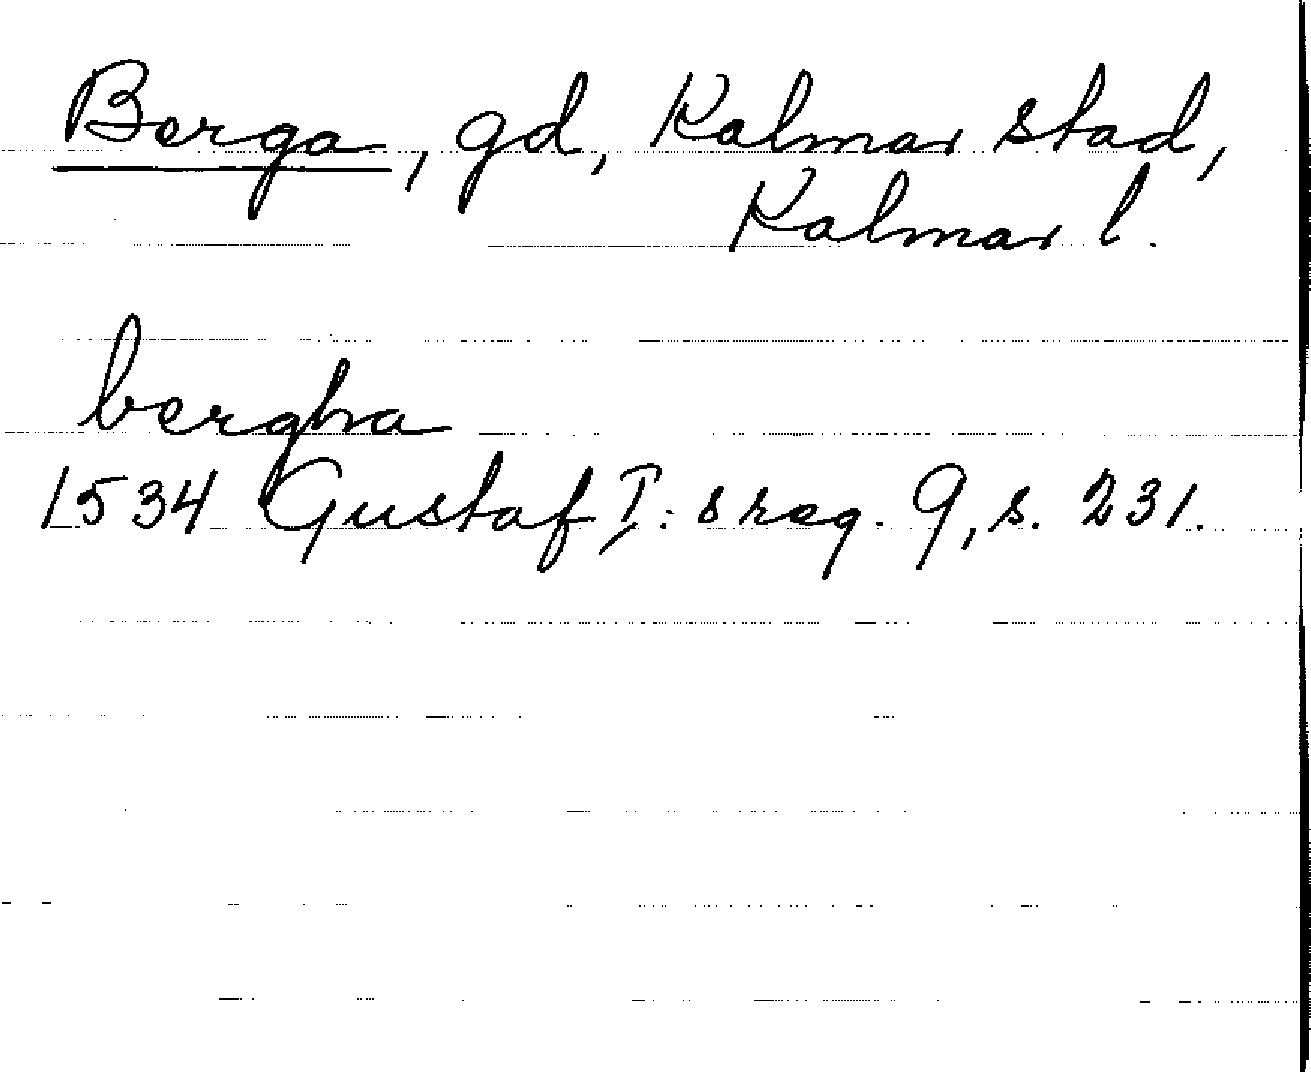 Berga, gd, Kalmar stad,
Kalmar l.
bergha
1534 Gustaf I:s reg. 9, s. 231.